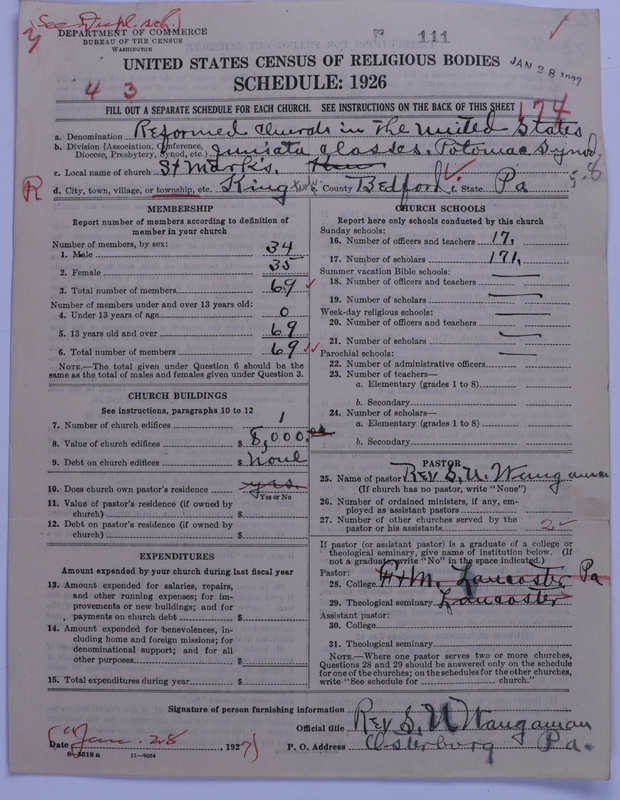 See Dupl. sch.)
DEPARTMENT OF COMMERCE
BUREAU OF THE CENSUS
WASHINGTON
111
UNITED STATES CENSUS OF RELIGIOUS BODIES
JAN 28 1927
SCHEDULE: 1926
4 3
FILL OUT A SEPARATE SCHEDULE FOR EACH CHURCH. SEE INSTRUCTIONS ON THE BACK OF THIS SHEET
174
a. Denomination Reformed Church in the United States
b. Division (Association, Conference, Diocese, Presbytery, Synod, etc.) Juniata classes. Potomac Synod.
c. Local name of church St Mark's.
5-8
R
d. City, town, village, or township, etc. King e. County Bedford f. State Pa
MEMBERSHIP
Report number of members according to definition of
member in your church
Number of members, by sex:
1. Male 34
2. Female 35
3. Total number of members 69
Number of members under and over 13 years old:
4. Under 13 years of age 0
5. 13 years old and over 69
6. Total number of members 69
NOTE.—The total given under Question 6 should be
same as the total of males and females given under Question 3.
CHURCH BUILDINGS
See instructions, paragraphs 10 to 12
7. Number of church edifices 1
8. Value of church edifices $ 8,000.00
9. Debt on church edifices $ None
10. Does church own pastor's residence yes
Yes or No
11. Value of pastor's residence (if owned by
church) $
12. Debt on pastor's residence (if owned by
church) $
EXPENDITURES
Amount expended by church during last fiscal year
13. Amount expended for salaries, repairs,
and other running expenses; for im-
provements or new buildings; and for
payments on church debt $
14. Amount expended for benevolences, in-
cluding home and foreign missions; for
denominational support; and for all
other purposes $
15. Total expenditures during year $
CHURCH SCHOOLS
Report here only schools conducted by this church
Sunday schools:
16. Number of officers and teachers 17,
17. Number of scholars 171,
Summer vacation Bible schools:
18. Number of officers and teachers
19. Number of scholars
Week-day religious schools:
20. Number of officers and teachers
21. Number of scholars
Parochial schools:
22. Number of administrative officers
23. Number of teachers—
a. Elementary (grades 1 to 8)
b. Secondary
24. Number of scholars—
a. Elementary (grades 1 to 8)
b. Secondary
PASTOR
25. Name of pastor Rev S. U. Waugaman
(If church has no pastor, write "None")
26. Number of ordained ministers, if any, em-
ployed as assistant pastors
27. Number of other churches served by the
pastor or his assistants 2
If pastor (or assistant pastor) is a graduate of a college or
theological seminary, give name of institution below. (If
not a graduate write "No" in the space indicated.)
Pastor:
28. College F & M. Lancaster Pa
29. Theological seminary Lancaster
Assistant pastor:
30. College
31. Theological seminary
NOTE.—Where one pastor serves two or more churches,
Questions 28 and 29 should be answered only on the schedule
for one of the churches; on the schedules for the other churches,
write "See schedule for church."
Signature of person furnishing information Rev S. U Waugaman
Official title
Date (Jan. 28 1927)
P. O. Address Osterburg Pa.
8-5518 a 11-9054